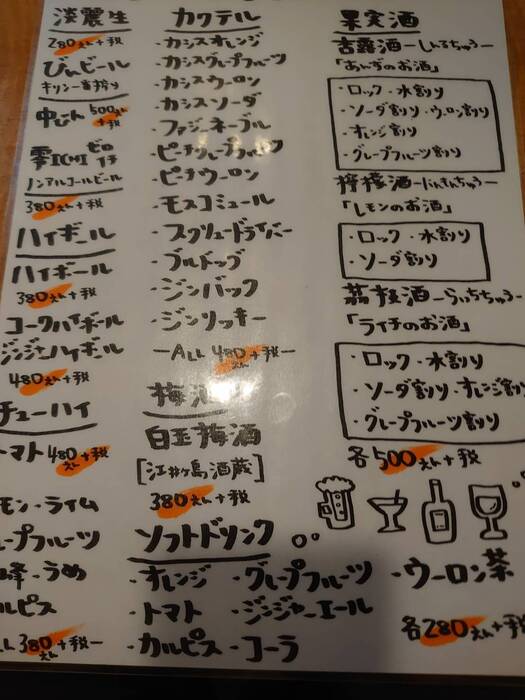 淡麗生
280えん+税
びんビール
キリン一番搾り
中びん 500えん
+税
零ICHI ゼロ
イチ
ノンアルコールビール
380えん+税
ハイボール
ハイボール
380えん+税
コークハイボール
ジンジャーハイボール
480えん+税
チューハイ
トマト 480
えん+税
モン・ライム
ープフルーツ
峰・うめ
ルピス
LL 380えん+税ー
カクテル
・カシスオレンジ
・カシスグレープフルーツ
・カシスウーロン
・カシスソーダ
・ファジーネーブル
・ピーチグレープフルーツ
・ピーチウーロン
・モスコミュール
・スクリュードライバー
・ブルドッグ
・ジンバック
・ジンリッキー
ーALL 480えん+税ー
梅酒
白玉梅酒
[江井ヶ島酒蔵]
380えん+税
ソフトドリンク
・オレンジ ・グレープフルーツ ・ウーロン茶
・トマト ・ジンジャーエール
・カルピス ・コーラ
各280えん+税
果実酒
杏露酒ーしんるちゅうー
「あんずのお酒」
・ロック・水割り
・ソーダ割り・ウーロン割り
・オレンジ割り
・グレープフルーツ割り
檸檬酒ーにんもんちゅうー
「レモンのお酒」
・ロック・水割り
・ソーダ割り
茘枝酒ーらいちちゅうー
「ライチのお酒」
・ロック・水割り
・ソーダ割り・オレンジ割り
・グレープフルーツ割り
各500えん+税